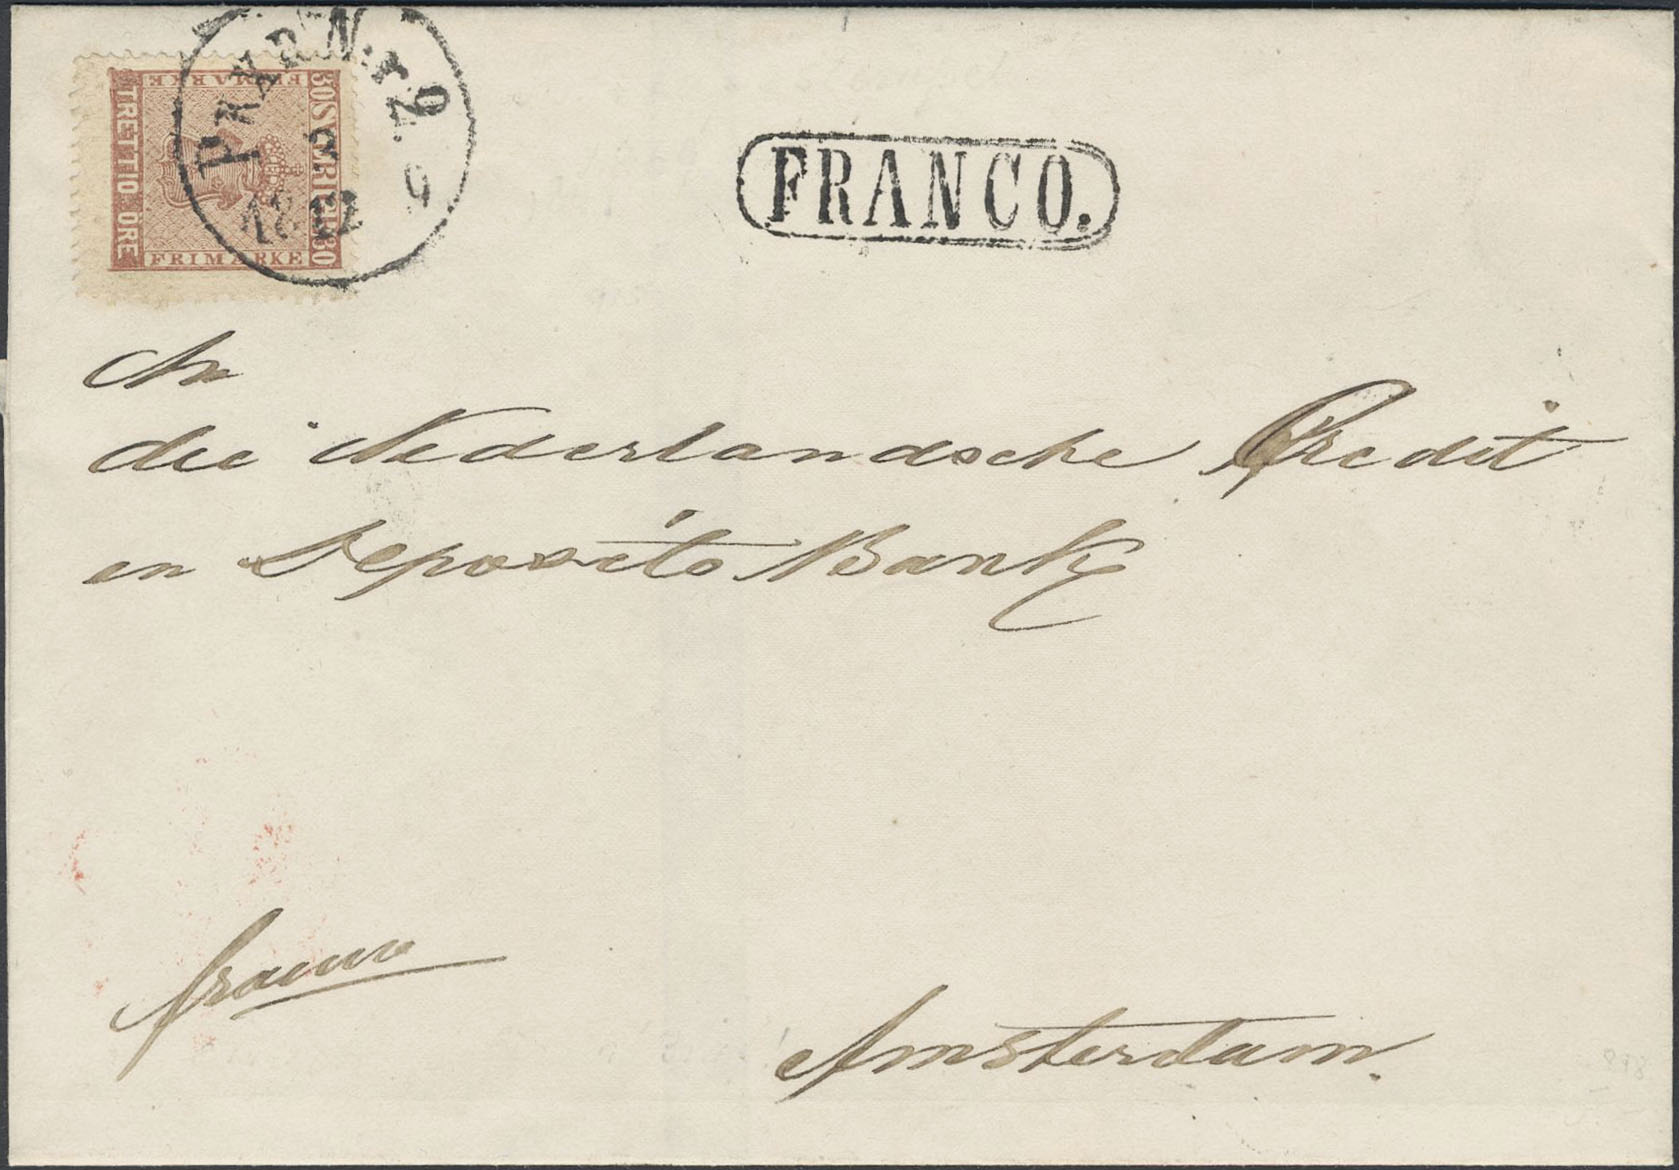 FRIMARKE
30 SVERIGE 30
TRETTIO ÖRE
FRIMARKE
PKXP. N:r 2
9
FRANCO.
An
die Nederlandsche Credit
en Deposito Bank
franco
Amsterdam.